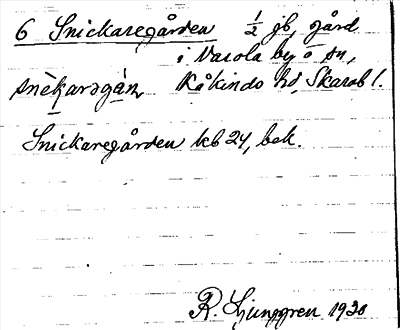 6 Snickaregården 1/2 jb, gård
i Varola by o sn,
Kåkinds hd, Skarab l.
Snickaregården kb 24, bek.
R. Ljunggren 1930